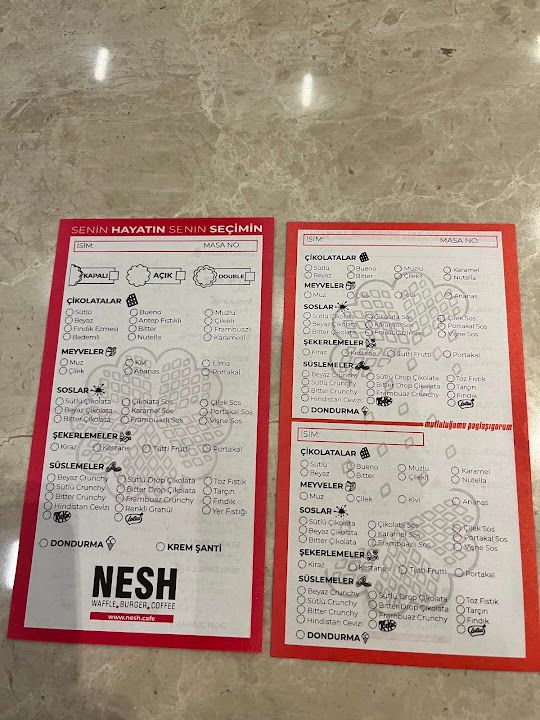 SENİN HAYATIN SENİN SEÇİMİN
İSİM: MASA NO:
KAPALI AÇIK DOUBLE
ÇİKOLATALAR
Sütlü Bueno Muzlu
Beyaz Antep Fıstıklı Çilekli
Fındık Ezmesi Bitter Frambuazlı
Bademli Nutella Karamelli
MEYVELER
Muz Kivi Elma
Çilek Ananas Portakal
SOSLAR
Sütlü Çikolata Çikolata Sos Çilek Sos
Beyaz Çikolata Karamel Sos Portakal Sos
Bitter Çikolata Frambuazlı Sos Vişne Sos
ŞEKERLEMELER
Kiraz Kestane Tutti Frutti Portakal
SÜSLEMELER
Beyaz Crunchy Sütlü Drop Çikolata Toz Fıstık
Sütlü Crunchy Bitter Drop Çikolata Tarçın
Bitter Crunchy Frambuaz Crunchy Fındık
Hindistan Cevizi Renkli Granül Yer Fıstığı
Lotus
DONDURMA KREM ŞANTİ
NESH
WAFFLE.BURGER.COFFEE
www.nesh.cafe
İSİM: MASA NO:
ÇİKOLATALAR
Sütlü Bueno Muzlu Karamel
Beyaz Bitter Çilekli Nutella
MEYVELER
Muz Çilek Kivi Ananas
SOSLAR
Sütlü Çikolata Çikolata Sos Çilek Sos
Beyaz Çikolata Karamel Sos Portakal Sos
Bitter Çikolata Frambuazlı Sos Vişne Sos
ŞEKERLEMELER
Kiraz Kestane Tutti Frutti Portakal
SÜSLEMELER
Beyaz Crunchy Sütlü Drop Çikolata Toz Fıstık
Sütlü Crunchy Bitter Drop Çikolata Tarçın
Bitter Crunchy Frambuaz Crunchy Fındık
Hindistan Cevizi Lotus
DONDURMA
mutluluğumu paylaşıyorum
İSİM:
ÇİKOLATALAR
Sütlü Bueno Muzlu Karamel
Beyaz Bitter Çilekli Nutella
MEYVELER
Muz Çilek Kivi Ananas
SOSLAR
Sütlü Çikolata Çikolata Sos Çilek Sos
Beyaz Çikolata Karamel Sos Portakal Sos
Bitter Çikolata Frambuazlı Sos Vişne Sos
ŞEKERLEMELER
Kiraz Kestane Tutti Frutti Portakal
SÜSLEMELER
Beyaz Crunchy Sütlü Drop Çikolata Toz Fıstık
Sütlü Crunchy Bitter Drop Çikolata Tarçın
Bitter Crunchy Frambuaz Crunchy Fındık
Hindistan Cevizi Lotus
DONDURMA